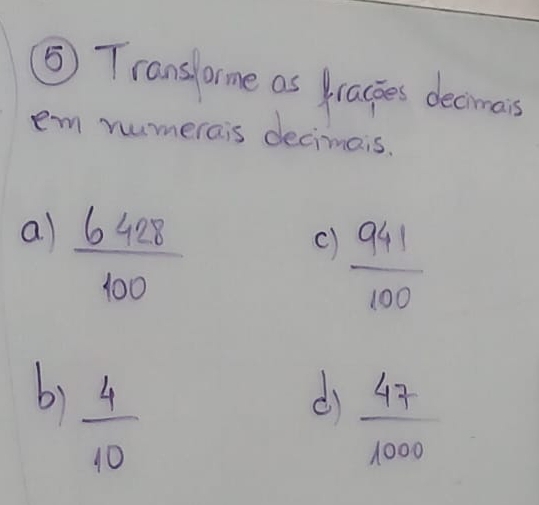 5 Transforme as frações decimais
em numerais decimais.
a) 6 428
100
c) 941
100
b) 4
10
d) 47
1000